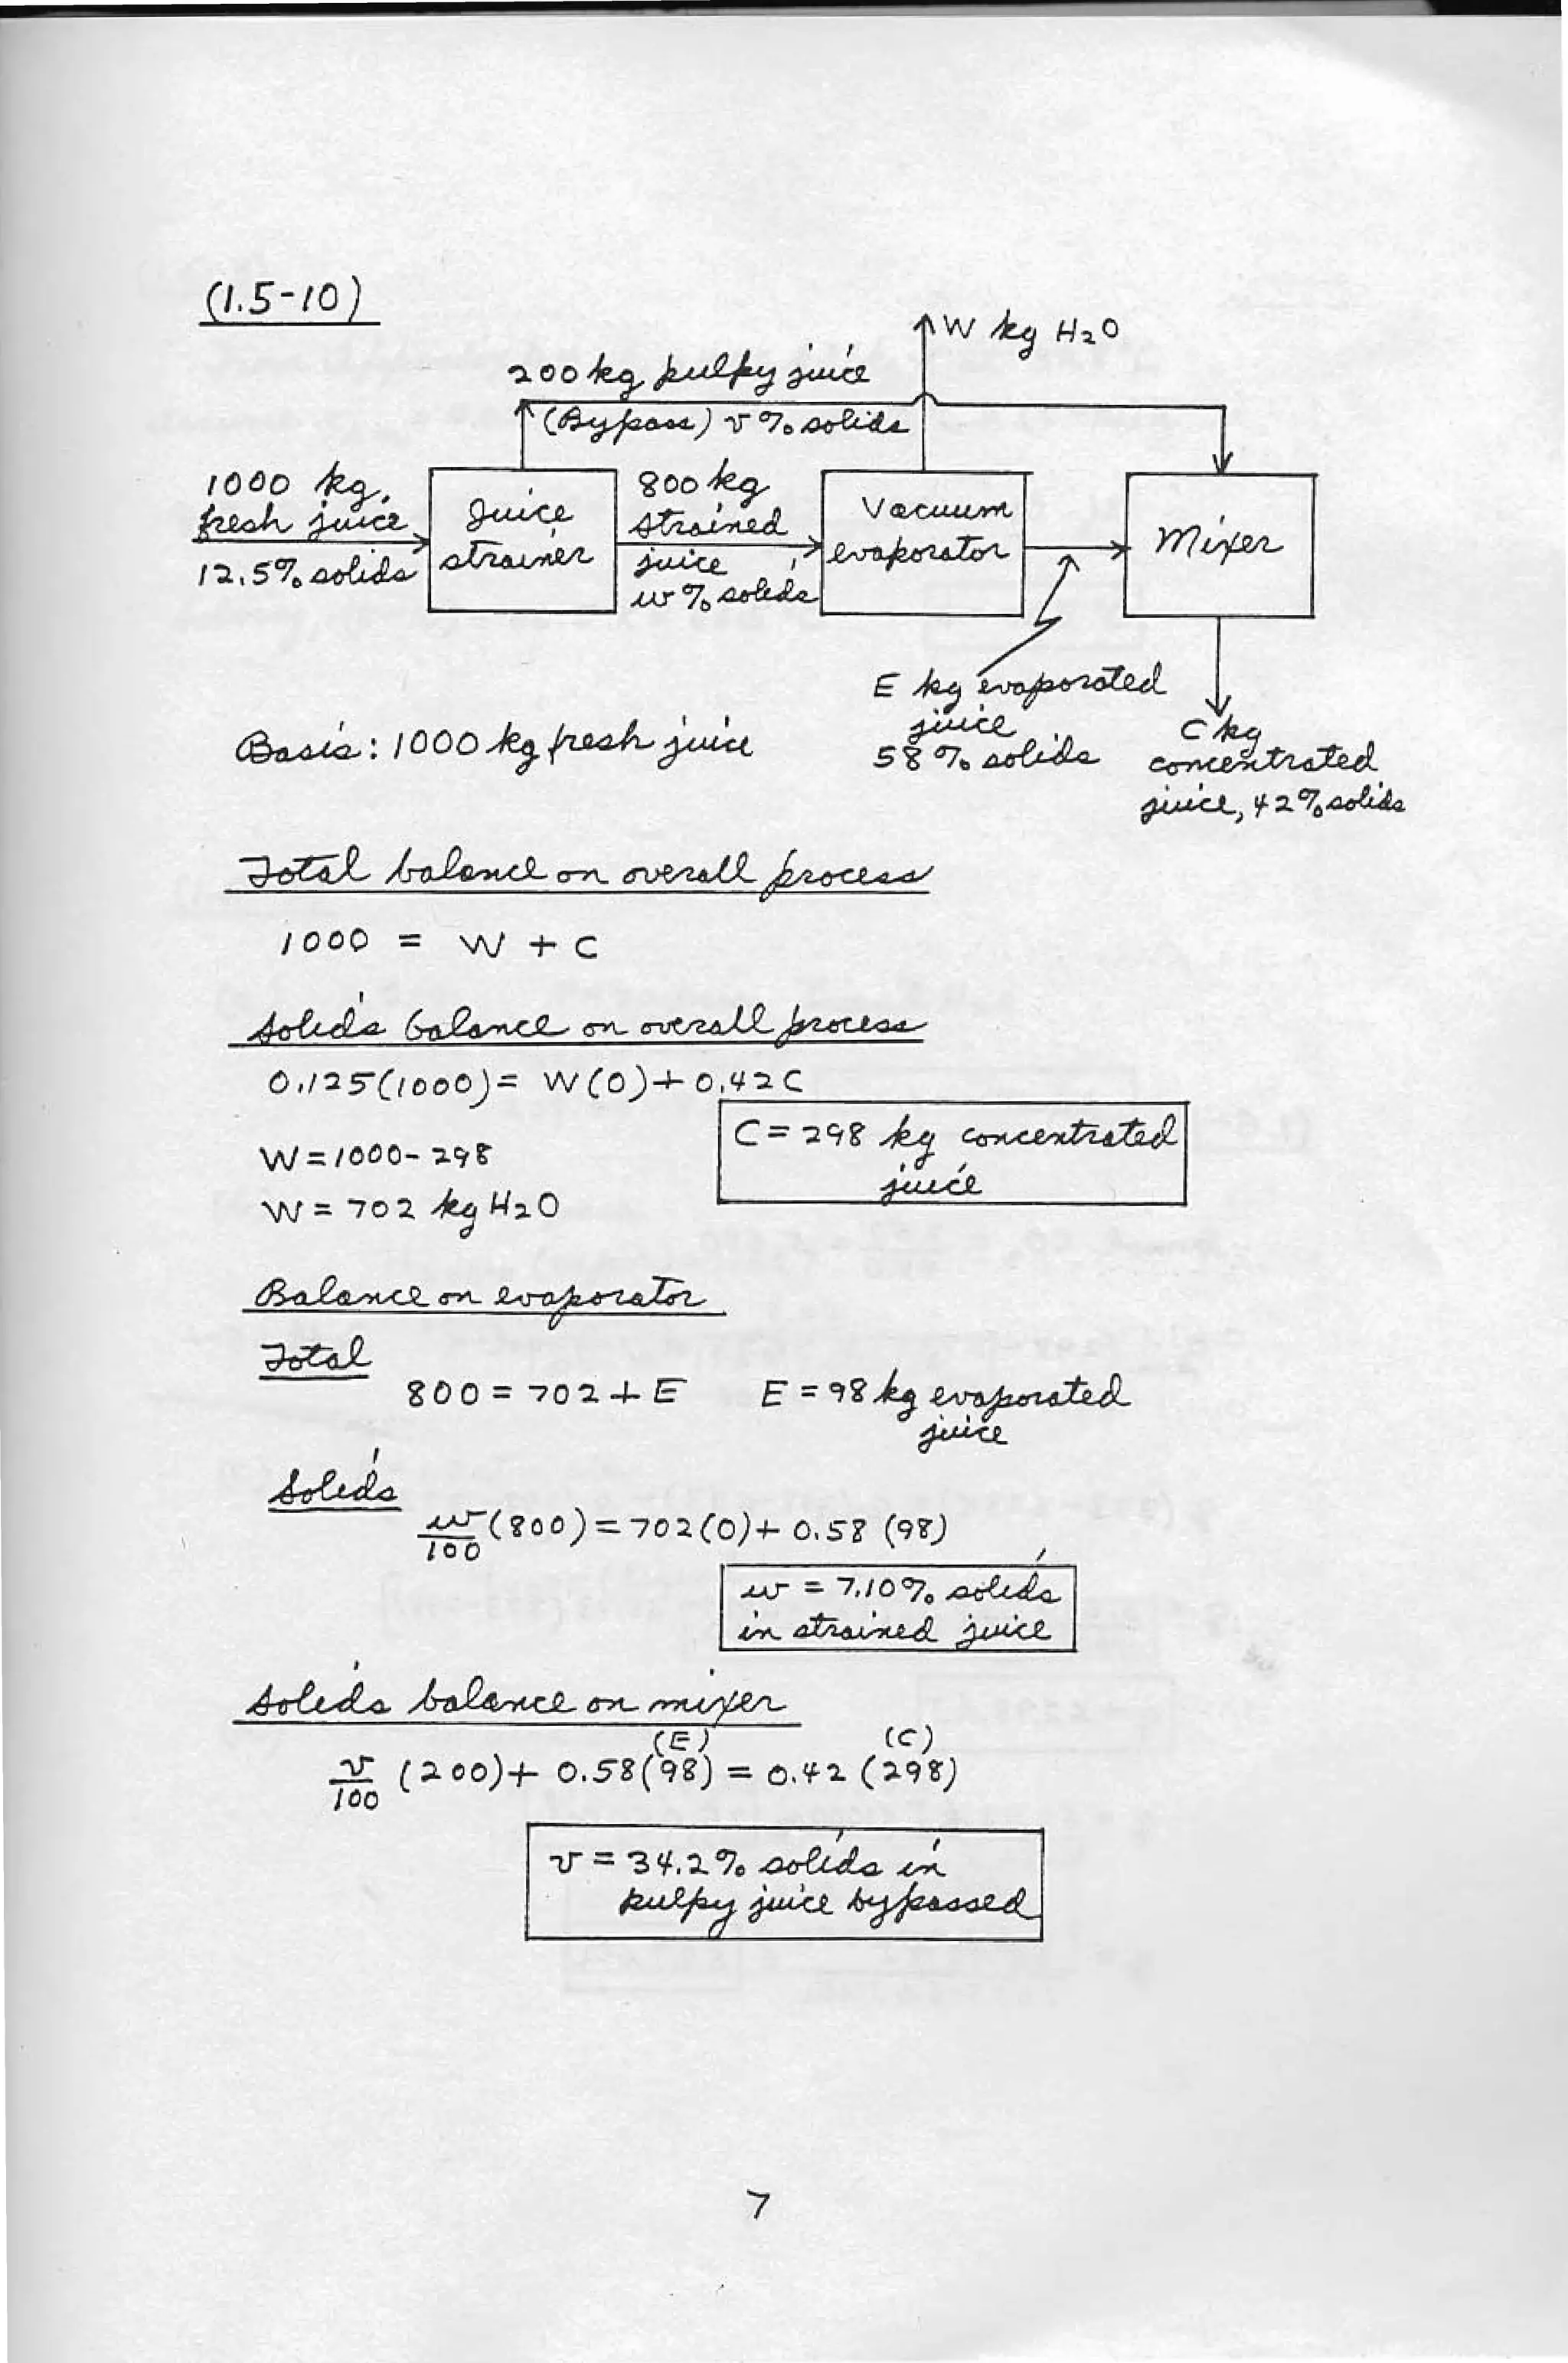 (1.5-10)
W kg H₂O
200 kg pulpy juice
(Bypass) v % solids
1000 kg.
fresh juice
12.5% solids
Juice
strainer
800 kg
strained
juice
w % solids
Vacuum
evaporator
Mixer
E kg evaporated
juice
58% solids
C kg
concentrated
juice, 42% solids
Basis: 1000 kg fresh juice
Total balance on overall process
1000 = W + C
Solids balance on overall process
0.125(1000) = W(0) + 0.42 C
C = 298 kg concentrated
juice
W = 1000 - 298
W = 702 kg H₂O
Balance on evaporator
Total
800 = 702 + E E = 98 kg evaporated
juice
Solids
w/100 (800) = 702(0) + 0.58 (98)
w = 7.10% solids
in strained juice
Solids balance on mixer
(E) (C)
v/100 (200) + 0.58(98) = 0.42 (298)
v = 34.2% solids in
pulpy juice bypassed
7